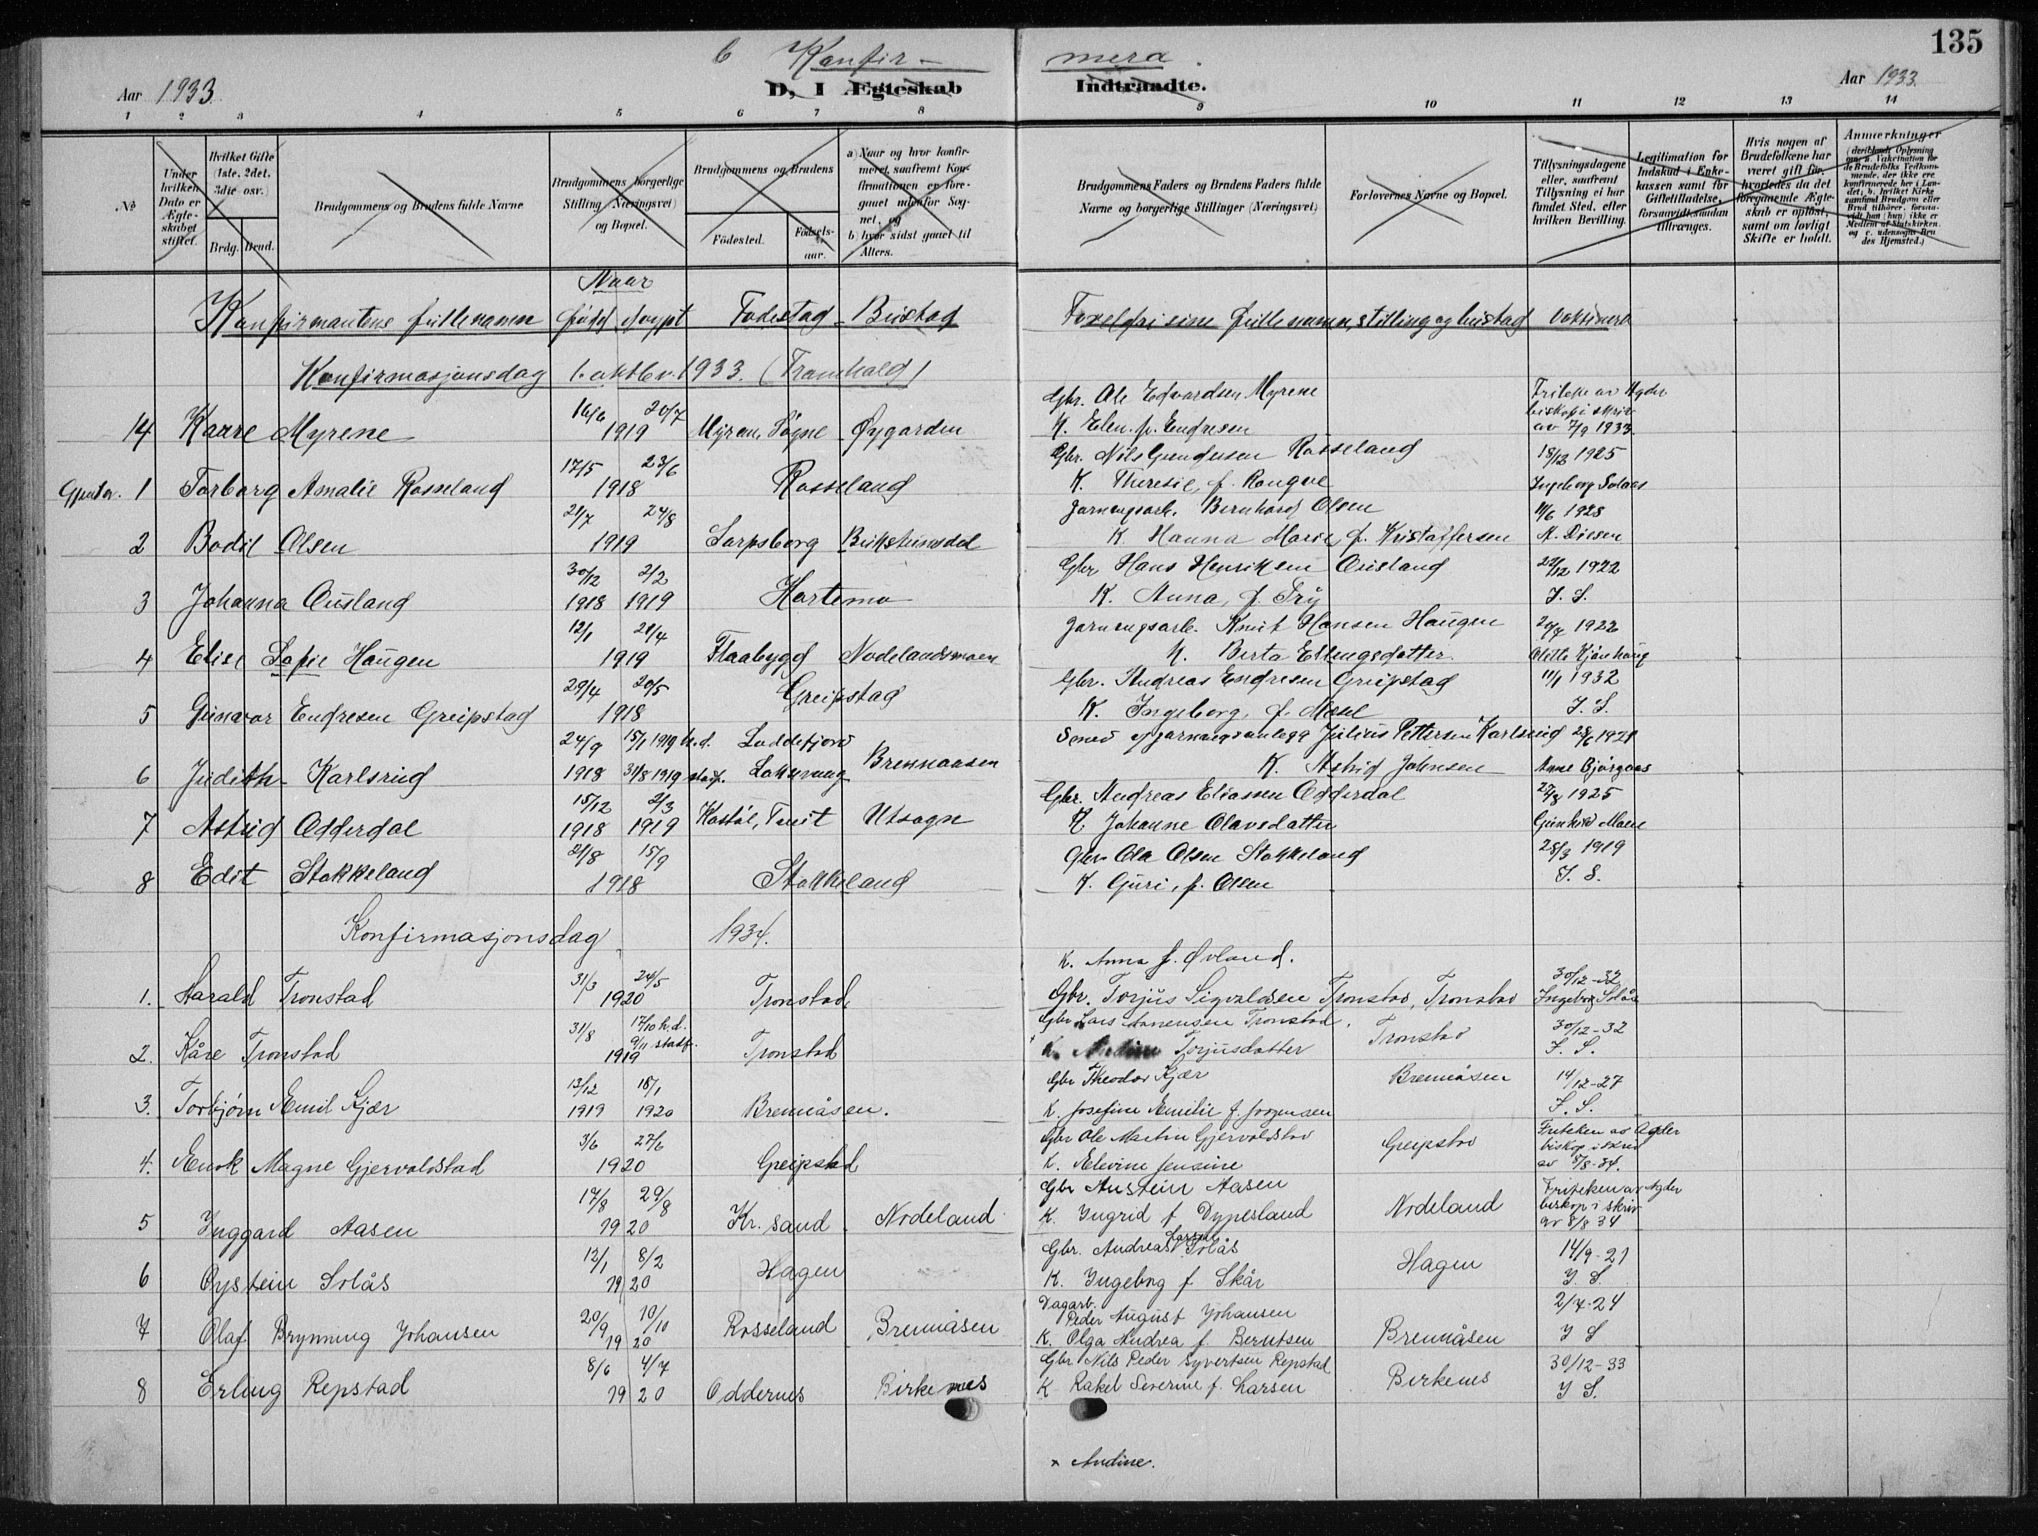 135
C Konfir- mera
Aar 1933
D, I Ægteskab Indtraadte.
Aar 1933
1 2 3 4 5 6 7 8 9 10 11 12 13 14
№
Under hvilken Dato er Ægteskabet stiftet.
Hvilket Gifte (1ste, 2det, 3die osv.)
Brdg. Brud.
Brudgommens og Brudens fulde Navne
Brudgommens borgerlige Stilling (Næringsvei) og Bopæl.
Brudgommens og Brudens
Födested. Födselsaar.
a) Naar og hvor konfirmeret, saafremt Konfirmationen er foregaaet udenfor Sognet, og
b) hvor sidst gaaet til Alters.
Brudgommens Faders og Brudens Faders fulde Navne og borgerlige Stillinger (Næringsvei)
Forlovernes Navne og Bopæl.
Tillysningsdagene eller, saafremt Tillysning ei har fundet Sted, efter hvilken Bevilling.
Legitimation for Indskud i Enkekassen samt for Giftetilladelse, forsaavidt saadan tiltrænges.
Hvis nogen af Brudefolkene har været gift før, hvorledes da det foregaaende Ægteskab er oplöst, samt om lovligt Skifte er holdt.
Anmærkninger
Naar
Konfirmantens fulle namn född döypt Fodestad Bustad Foreldri sine fulle namn, stilling og bustad Vaksinera
Konfirmasjonsdag 1. oktbr. 1933. (Framhald)
14 Kaare Myrene 16/6 20/7 1919 Myren, Søgne Øygarden
Gbr. Ole Edvardsen Myrene
K. Elen f. Endresen
Friteke av Agder biskop i skriv av 7/9 1933.
Gjentor. 1 Torborg Amalie Rosseland 17/5 23/6 1918 Rosseland
Gbr. Nils Gundersen Rosseland
K. Theresie, f. Ronque
18/12 1925 Ingeborg Solaas
2 Bodil Olsen 21/7 24/8 1919 Sarpsborg
Jarnvegsarb. Bernhard Olsen
K Hanna Marie, f. Kristoffersen
11/6 1928 M. Diesen
3 Johanna Ousland 30/12 1918 2/2 1919 Hortemo
Gbr. Hans Henriksen Ousland
K. Anna, f. Try
22/12 1922 J. S.
4 Elise Sofie Haugen 12/1 21/4 1919 Flaabygd Nodelandsmoen
Jarnvegsarb. Knut Hansen Haugen
K. Berta Ellengsdatter
20/7 1922
5 Gunvor Endresen Greipstad 29/4 20/5 1918 Greipstad
Gbr. Andreas Endresen Greipstad
K. Ingeborg, f. Mosel
11/1 1932 J. S.
6 Judith Karlsrud 24/9 1918 15/1 1919 h.d. 31/8 1919 stadf. Loddefjord Laksevaag Brennaasen
Smed v/ jarnvegsanlegg Julius Pettersen Karlsrud
K. Astrid Johnsen
28/6 1921 Anne Bjørgaas
7 Astrid Odderdal 15/12 1918 2/3 1919 Kostøl, Tveit Utsogne
Gbr. Andreas Eliassen Odderdal
K Johanne Olavsdatter
27/8 1925 Gunhild Moen
8 Edit Stokkeland 21/8 15/9 1918 Stokkeland
Gbr Ola Olsen Stokkeland
K. Guri, f. Olsen
28/3 1919 J. S.
Konfirmasjonsdag 1934.
K. Anna f. Øvland.
1. Harald Tronstad 31/3 24/5 1920 Tronstad
Gbr. Torjus Sigvaldsen Tronstad, Tronstad
30/12-32 Ingeborg Solås
2. Kåre Tronstad 31/8 17/10 h.d. 9/11 stadf. 1919 Tronstad
Gbr Lars Aanensen Tronstad. Tronstad
x K. Torjusdatter
30/12-32 J. S.
3. Torbjørn Emil Kjær 13/12 1919 18/1 1920 Brennåsen.
Gbr Theodor Kjær Brennåsen
K. Josefine Emilie f. Jörgensen
14/12-27 J. S.
4. Enok Magne Gjervoldstad 3/6 27/6 1920 Greipstad
Gbr Ole Martin Gjervoldstad Greipstad
K. Elevine Jensine
Friteken av Agder biskop i skriv av 8/8-34.
5 Inggard Aasen 17/8 29/8 1920 Kr.sand Nodeland
Gbr Austein Aasen Nodeland
K. Ingrid f Dypesland
Friteken av Agder biskop i skriv av 8/8 34
6 Øystein Solås 12/1 8/2 1920 Hagen
Gbr. Andreas Larsen Solås Hagen
K. Ingeborg f Skår
14/9-21 J. S.
7 Olaf Brynning Johansen 20/9 10/10 1920 Rosseland Brennåsen
Dagarb. Peder August Johansen
K. Olga Andrea f. Berntsen Brennåsen
2/7-24 J S
8 Erling Repstad 8/6 4/7 1920 Oddernes Birkenes
Gbr Nils Peder Syvertsen Repstad
K Rakel Severine f. Larsen Birkenes
30/12-33 J S.
x Andine.